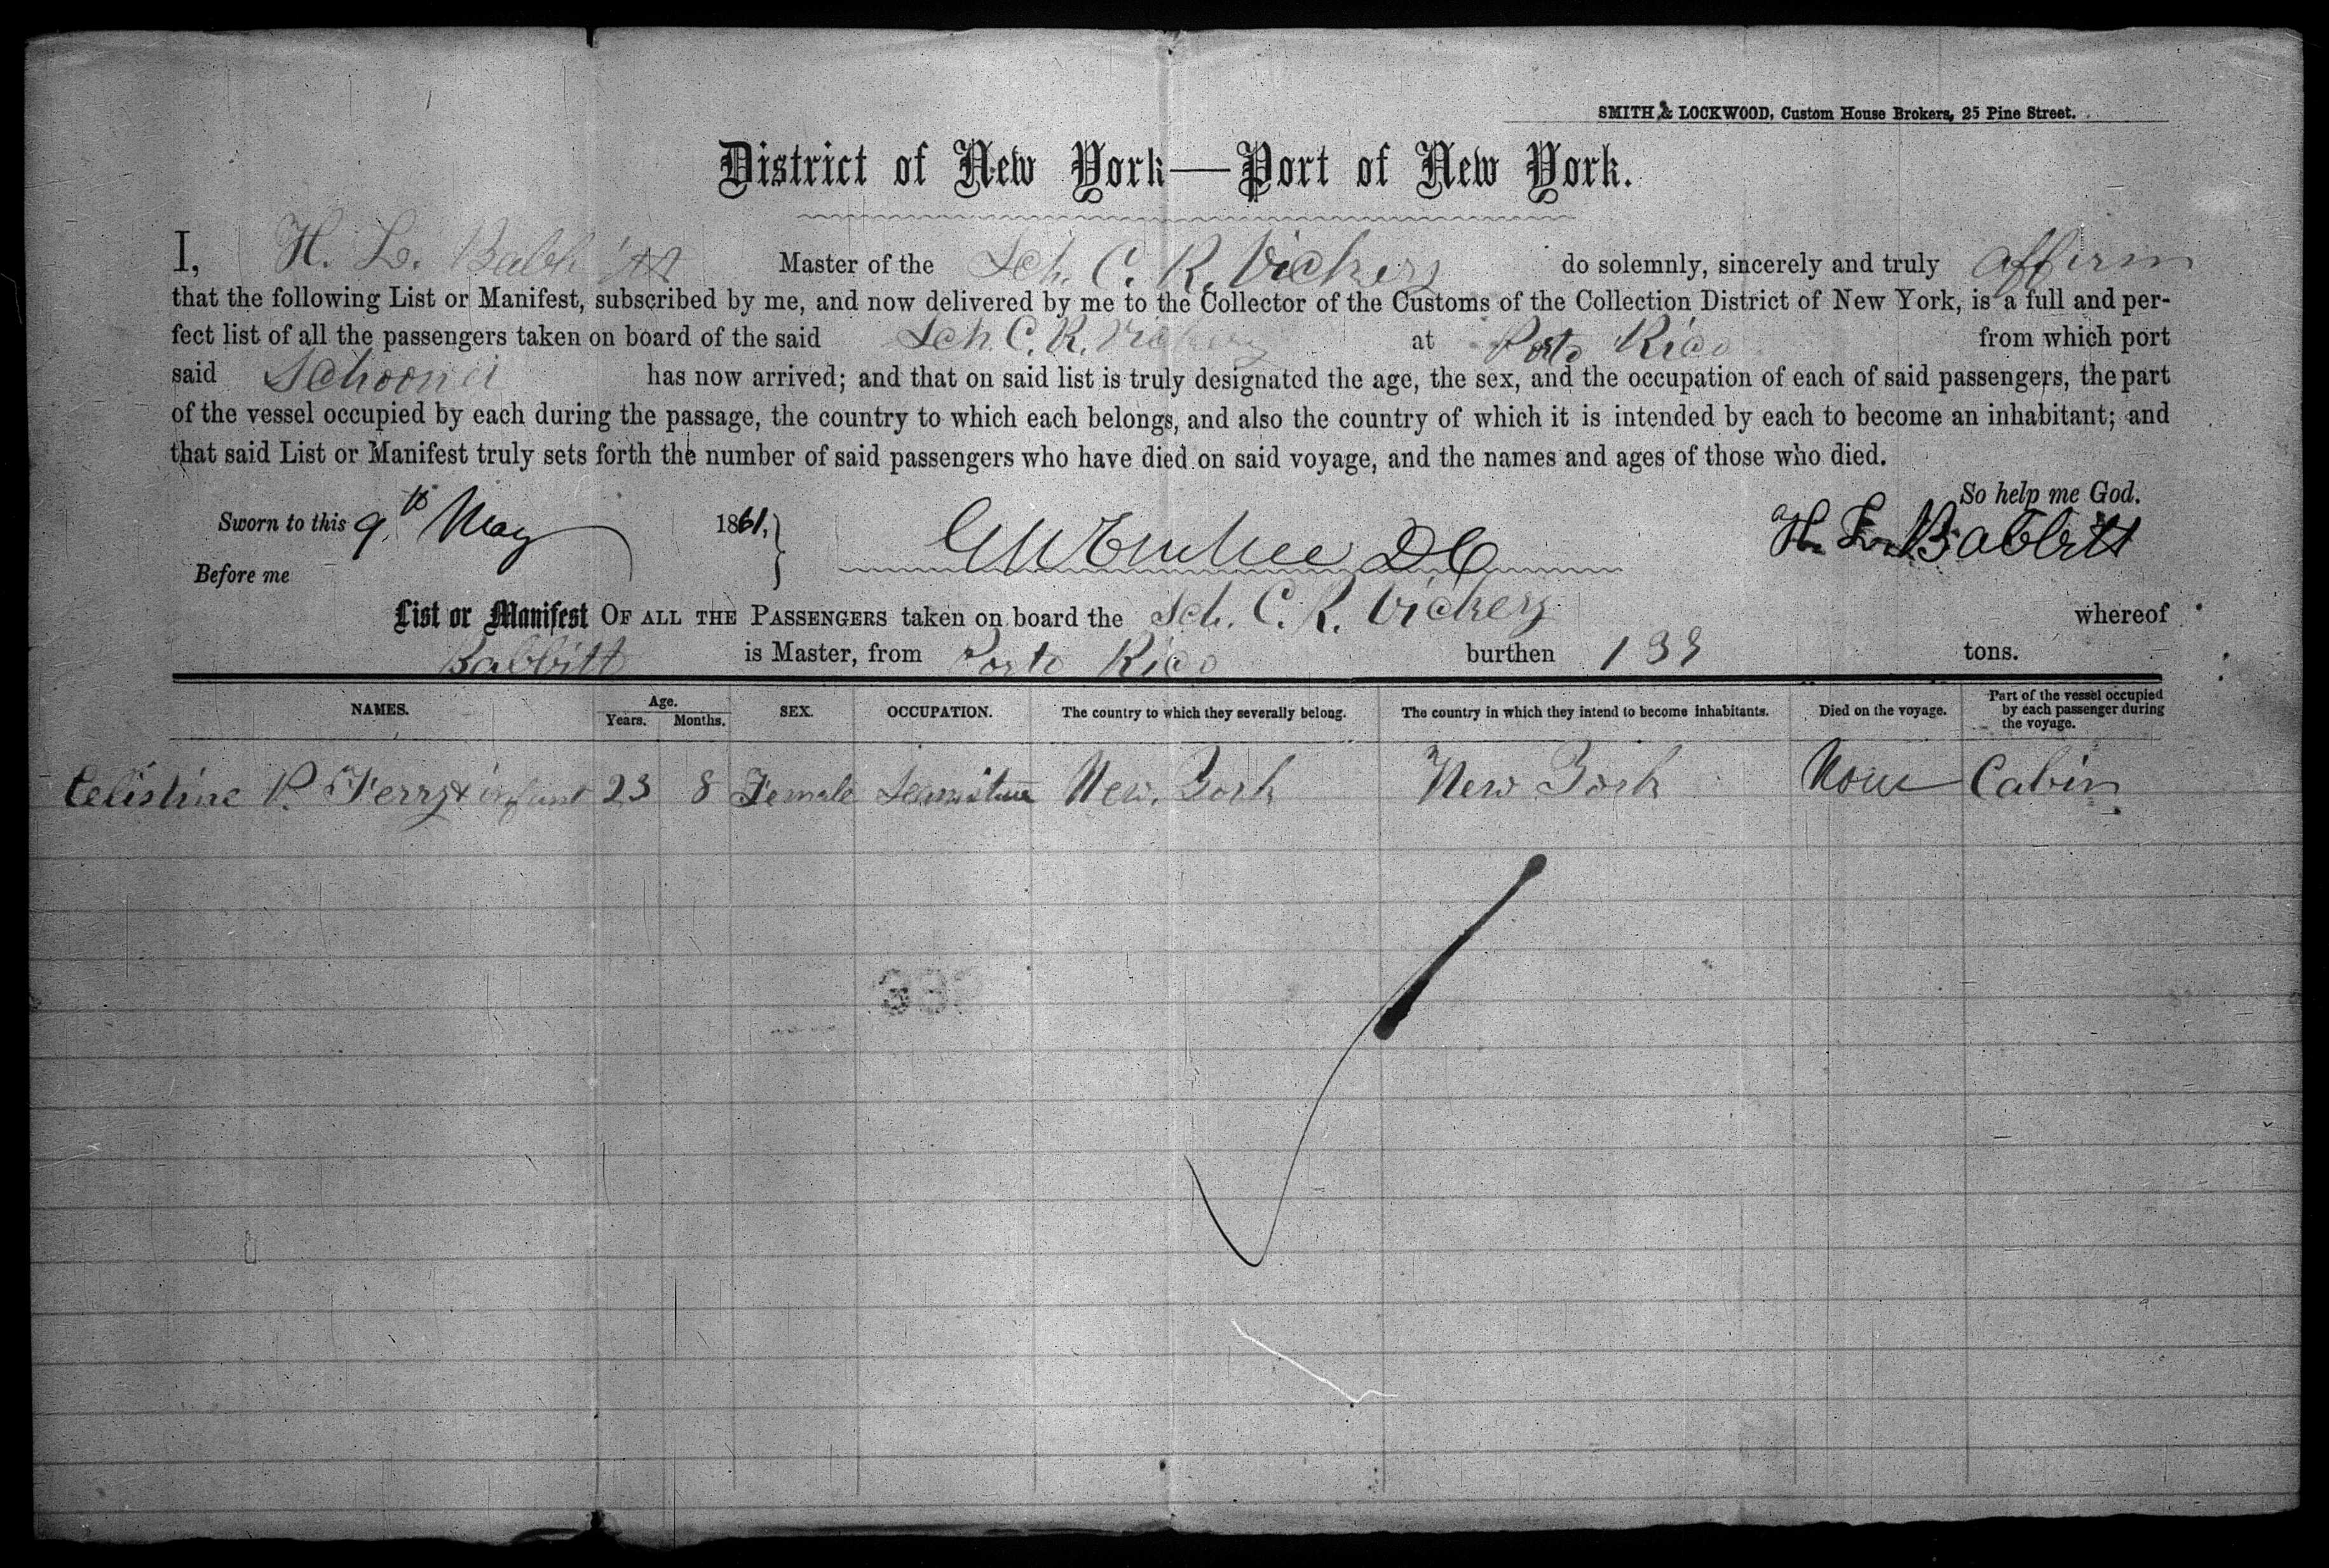 SMITH & LOCKWOOD, Custom House Brokers, 25 Pine Street.
District of New York—Port of New York.
I, H. L. Babbitt Master of the Sch. C. R. Vickery do solemnly, sincerely and truly affirm
that the following List or Manifest, subscribed by me, and now delivered by me to the Collector of the Customs of the Collection District of New York, is a full and per-
fect list of all the passengers taken on board of the said Sch. C. R. Vickery at Porto Rico from which port
said Schooner has now arrived; and that on said list is truly designated the age, the sex, and the occupation of each of said passengers, the part
of the vessel occupied by each during the passage, the country to which each belongs, and also the country of which it is intended by each to become an inhabitant; and
that said List or Manifest truly sets forth the number of said passengers who have died on said voyage, and the names and ages of those who died.
So help me God.
Sworn to this 9th May 1861, H. L. Babbitt
Before me
List or Manifest OF ALL THE PASSENGERS taken on board the Sch. C. R. Vickery whereof
Babbitt is Master, from Porto Rico burthen 139 tons.
NAMES. Age. Years. Months. SEX. OCCUPATION. The country to which they severally belong. The country in which they intend to become inhabitants. Died on the voyage. Part of the vessel occupied by each passenger during the voyage.
Celistine P. Ferry & infant 23 8 Female New York New York None Cabin